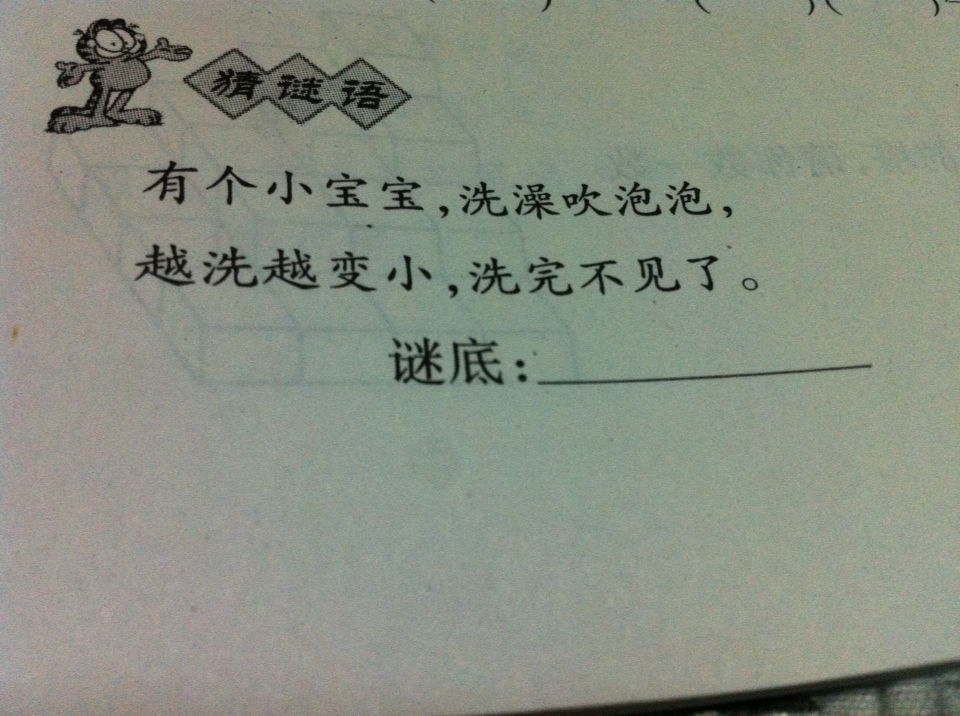 猜谜语
有个小宝宝,洗澡吹泡泡,
越洗越变小,洗完不见了。
谜底: